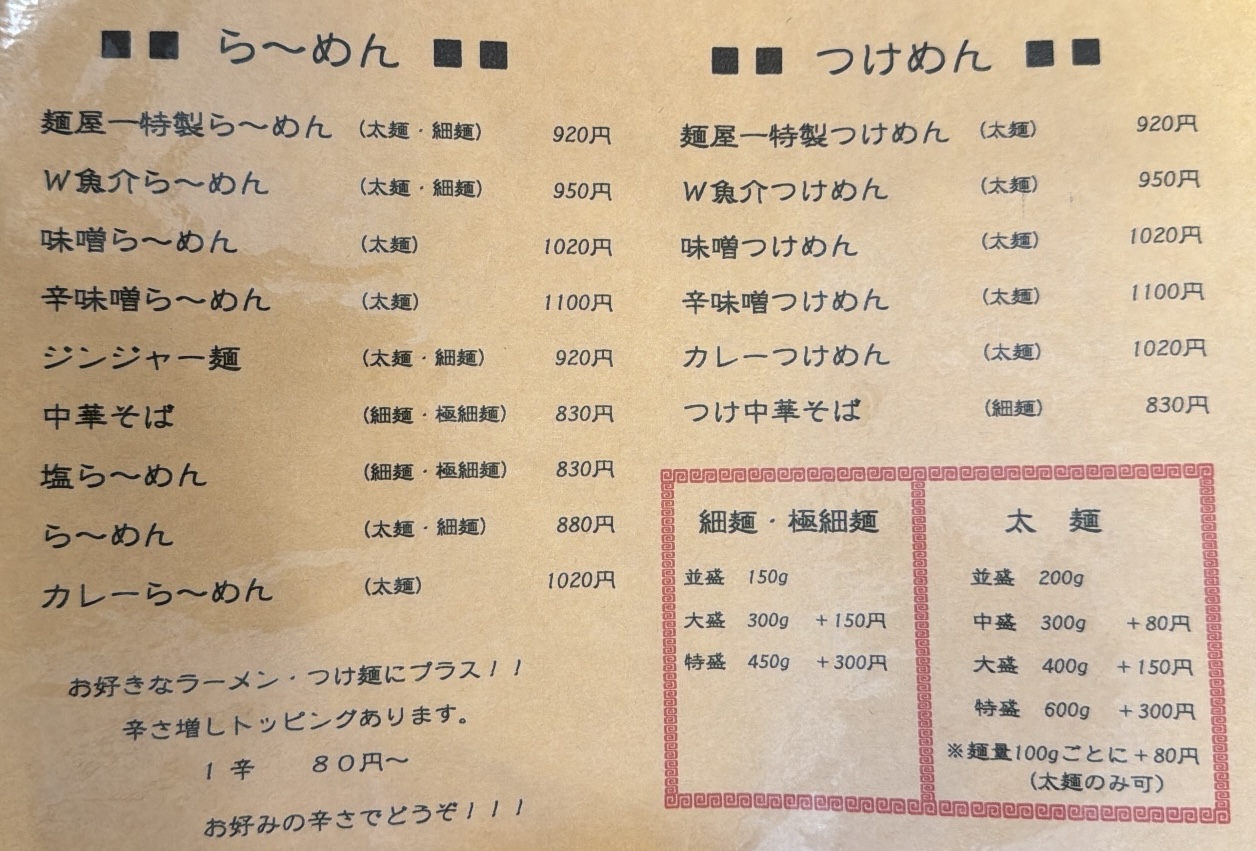 ■■ ら〜めん ■■
麺屋一特製ら〜めん （太麺・細麺） 920円
W魚介ら〜めん （太麺・細麺） 950円
味噌ら〜めん （太麺） 1020円
辛味噌ら〜めん （太麺） 1100円
ジンジャー麺 （太麺・細麺） 920円
中華そば （細麺・極細麺） 830円
塩ら〜めん （細麺・極細麺） 830円
ら〜めん （太麺・細麺） 880円
カレーら〜めん （太麺） 1020円
お好きなラーメン・つけ麺にプラス！！
辛さ増しトッピングあります。
１辛 ８０円〜
お好みの辛さでどうぞ！！！
■■ つけめん ■■
麺屋一特製つけめん （太麺） 920円
W魚介つけめん （太麺） 950円
味噌つけめん （太麺） 1020円
辛味噌つけめん （太麺） 1100円
カレーつけめん （太麺） 1020円
つけ中華そば （細麺） 830円
細麺・極細麺
並盛 150g
大盛 300g +150円
特盛 450g +300円
太 麺
並盛 200g
中盛 300g +80円
大盛 400g +150円
特盛 600g +300円
※麺量100gごとに+80円
（太麺のみ可）